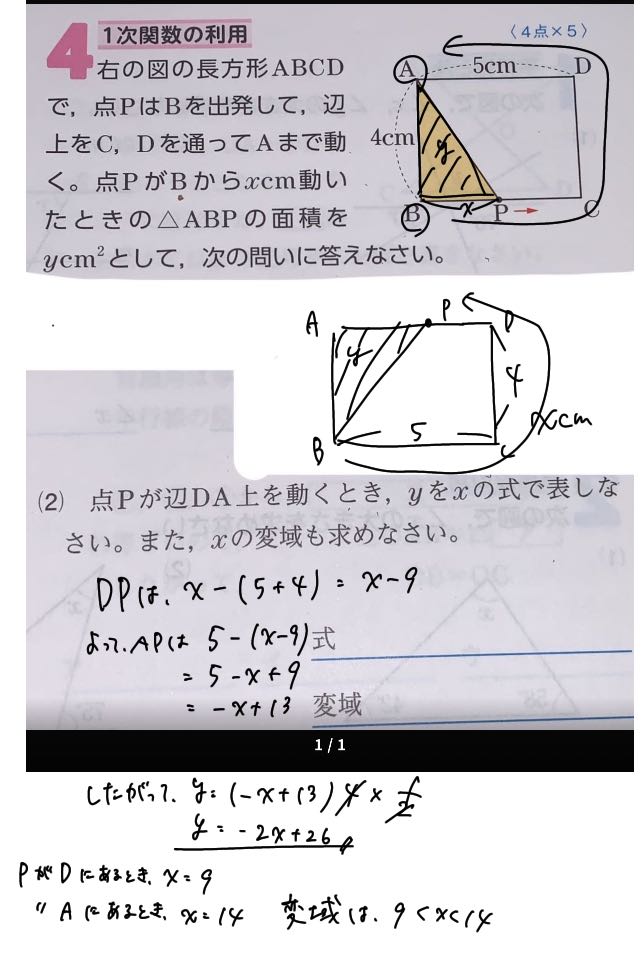 4 1次関数の利用 〈4点×5〉
右の図の長方形ABCD
で，点PはBを出発して，辺
上をC，Dを通ってAまで動
く。点PがBからxcm動い
たときの△ABPの面積を
ycm²として，次の問いに答えなさい。
A 5cm D
4cm y
B x P C
A P D
y 4
B 5 C xcm
(2) 点Pが辺DA上を動くとき，yをxの式で表しな
さい。また，xの変域も求めなさい。
DPは、x-(5+4) = x-9
よって、APは 5-(x-9) 式
= 5-x+9
= -x+13 変域
1/1
したがって、y=(-x+13)4×1/2
y=-2x+26
PがDにあるとき、x=9
〃Aにあるとき、x=14 変域は、9<x<14